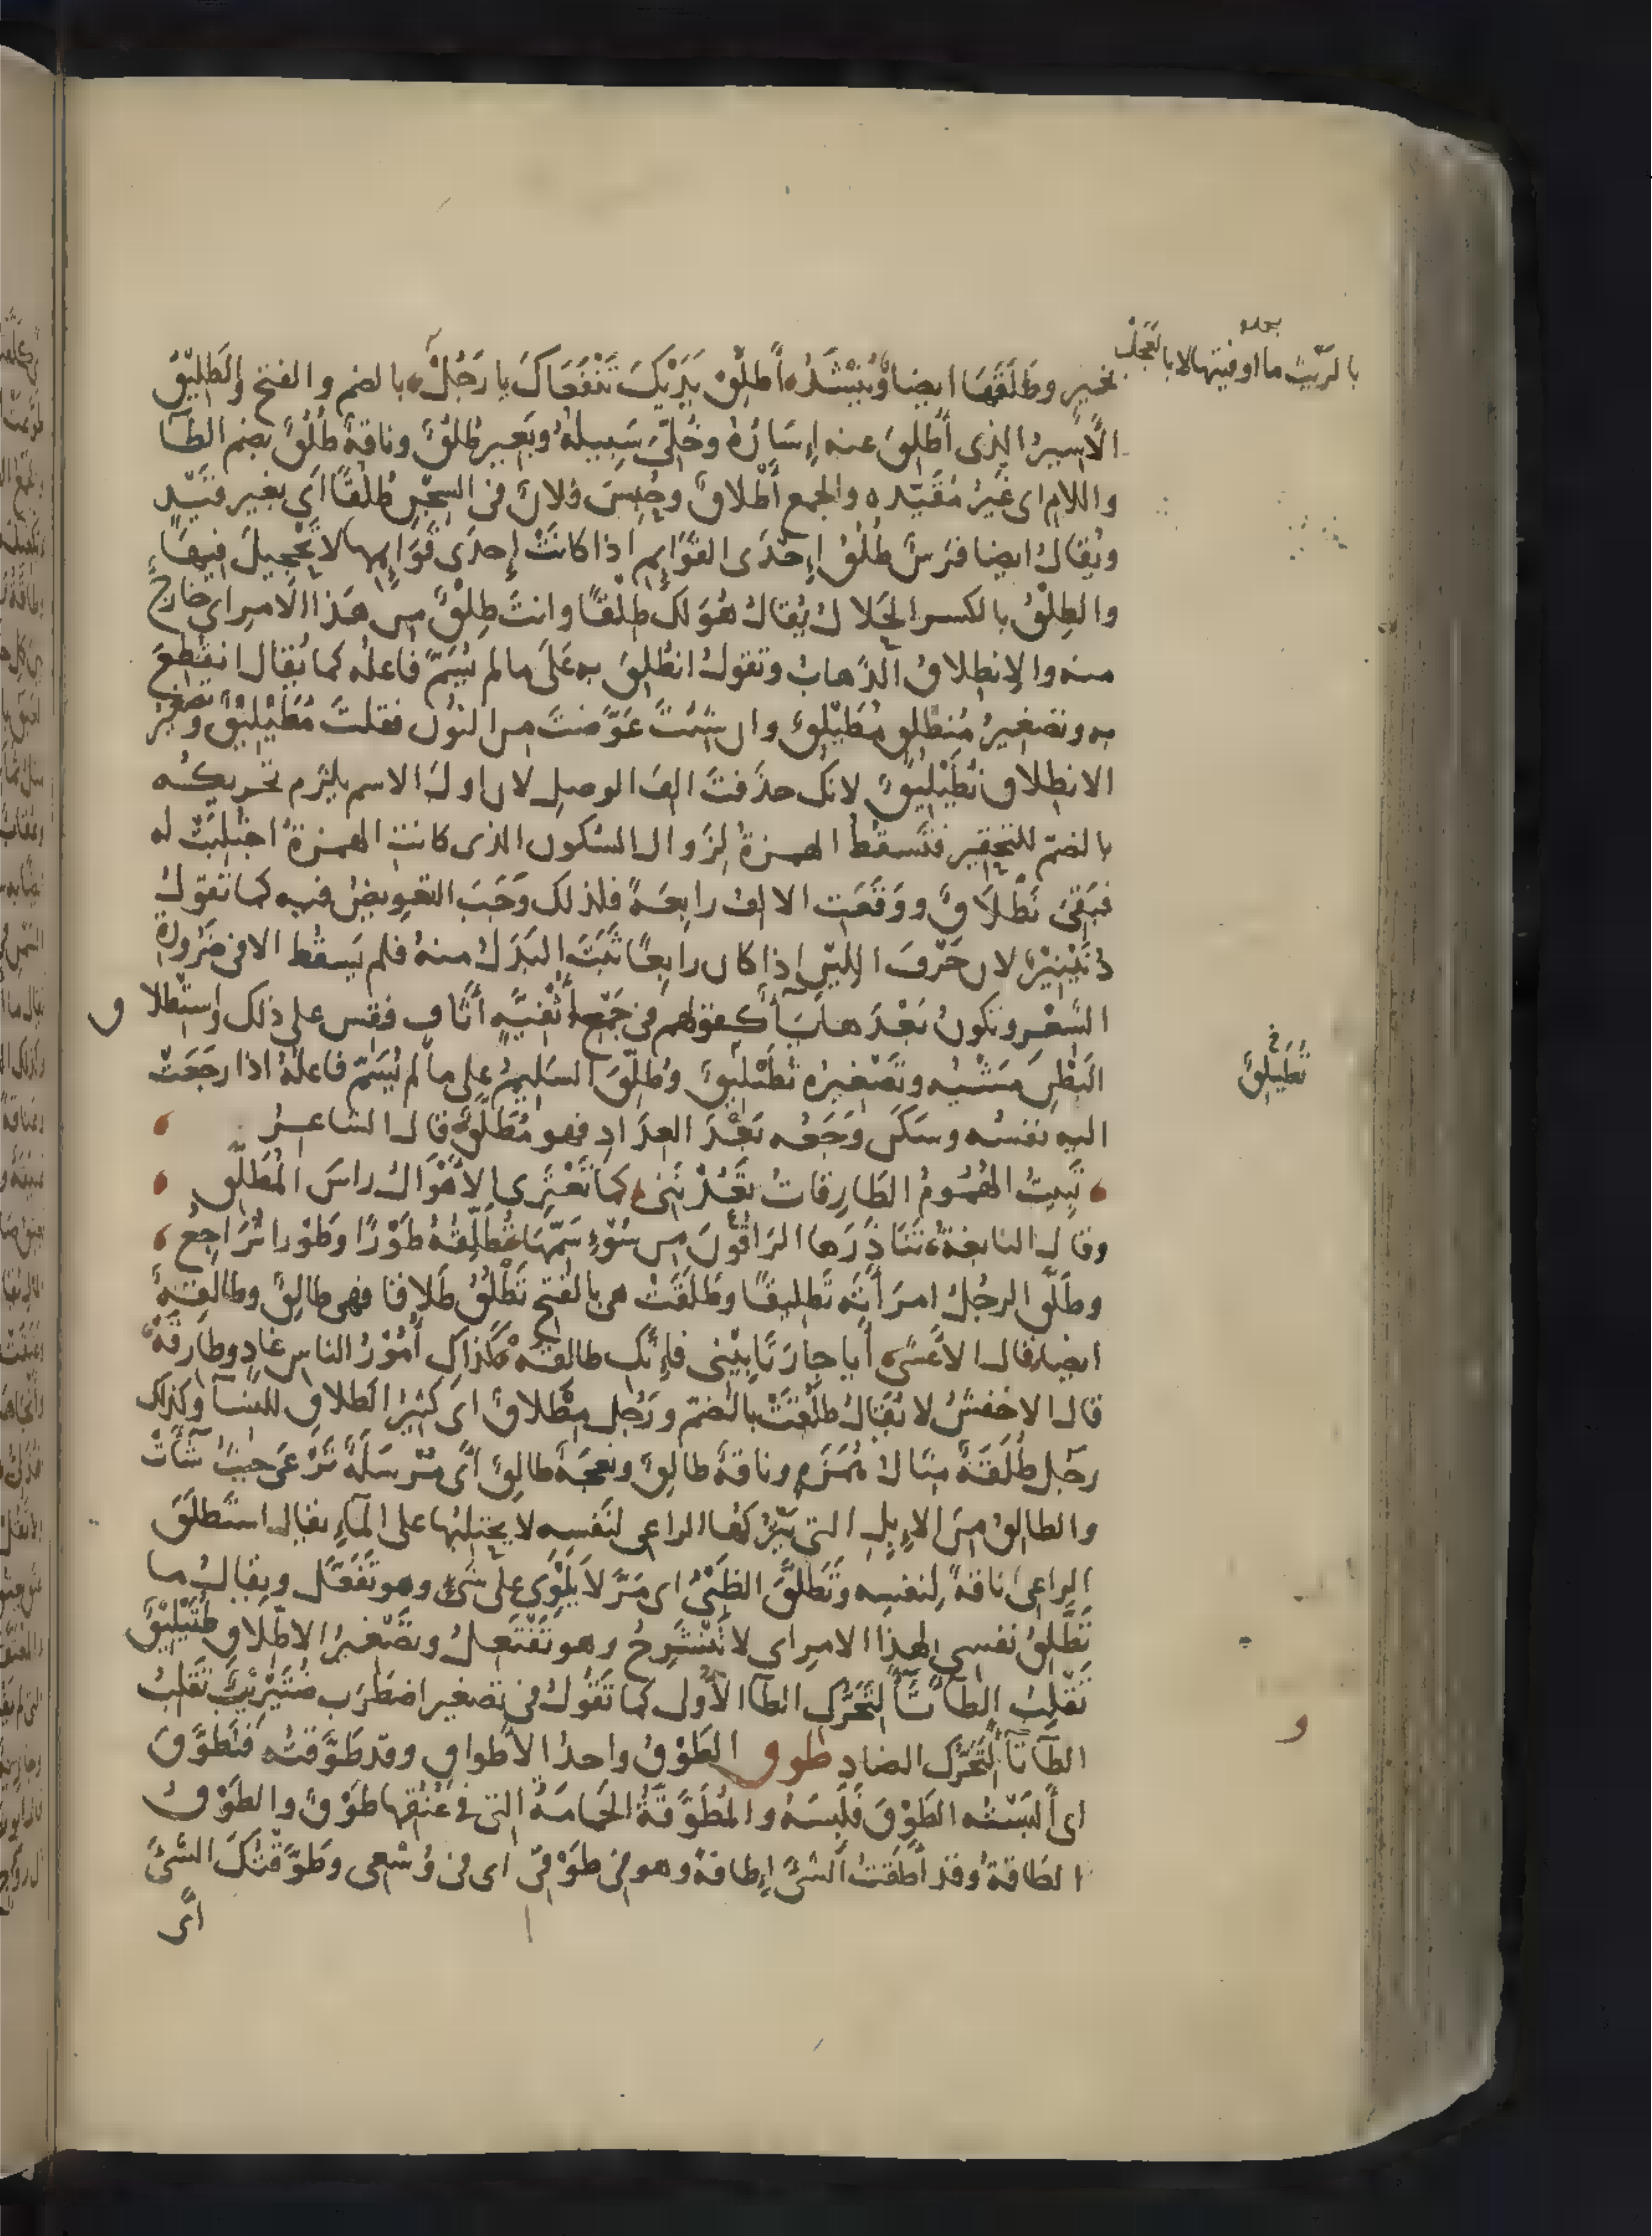 بالريث ما اوفيتها لا بالعجل
بخير وطلقها ايضا وينشد أَطْلِقْ يَدَيْكَ تَنْفَعَاكَ يا رَجُلْ بالضم والفتح والطَلِيقُ
الأَسِيرُ الذى أُطْلِقَ عنه إِسَارُهُ وخُلِّىَ سَبِيلُهُ وبَعِير طُلُقٌ وناقة طُلُقٌ بضم الطآ
واللام اى غَيْرُ مُقَيَّد والجمع أَطْلَاقٌ وحُبِسَ فلانٌ فى السجن طُلُقًا أى بغير قَيْد
ويُقالُ ايضا فرَسٌ طُلُقُ إِحْدَى القَوَايِم اذا كانَتْ إِحدَى قَوَايِمها لا تَحْجِيلَ فيها
والطِلْقُ بالكسر الحَلالُ يُقالُ هُوَ لك طِلْقًا وانتَ طِلْقٌ مِن هَذا الامر اى خارجٌ
منه والاِنطِلاقُ الذهابُ وتقولُ انطُلِقَ به على ما لم يُسَمَّ فاعله كما يُقال انقُطِعَ
به وتصغيرُ مُنطلِق مُطَيْلِقٌ وان شئتَ عَوَّضتَ من النون فقلتَ مُطَيْلِيقٌ وتصغيرُ
الانطلاق نُطَيْلِيقٌ لانك حذَفتَ الفَ الوصل لان اولَ الاسم يلزم تحريكُه
بالضمّ للتحقير فتَسقُطُ الهمزةُ لِزَوال السكون الذى كانت الهمزةُ اجتُلِبَتْ له
فبَقِىَ نَطْلَاقٌ ووَقَعَتِ الالفُ رابِعَةً فلذلك وَجَبَ التعويضُ فيه كما تقولُ
دُنَيْنِيرٌ لان حَرْفَ اللِين اذا كان رابعًا ثَبَتَ البَدَلُ منهُ فلم يَسقُط الا فى ضَرُورة
الشعر وتكونُ بَعْدَها يآ كقولهم فى جَمْعِ أُثْفِيَّةٍ أَثَافٍ فقِس على ذلك واستطلاق
البَطْنِ مَشْيُه وتَصْغيرُه تُطَيْلِيقٌ وطُلِّقَ السليمُ على ما لم يُسَمَّ فاعلُهُ اذا رجَعَتْ
تُطَيْلِقٌ
اليه نفسُه وسَكَن وَجَعُه بَعْدَ العِدَادِ فهو مُطَلَّقٌ قال الشاعر
تَبِيتُ الهُمُومُ الطارِقاتُ يَعُدْنَنِى كما تَعْتَرِى الأَهْوَالُ راسَ المُطَلَّقِ
وقال النابغة تَنَاذَرَها الراقُونَ مِن سُوْءِ سَمِّهَا تُطَلِّقُهُ طَوْرًا وطَوْرا تُرَاجِعُ
وطَلَّق الرجُلُ امرَأَتَه تَطليقًا وطَلَقَتْ هى بالفتح تَطْلُقُ طَلاقا فهى طالِقٌ وطالِقَةٌ
ايضا قال الأَعْشَى أَيا جارَتا بِيْنى فإِنَّكِ طالِقَهْ كذاكِ أُمُوْرُ الناسِ غادٍ وطارِقَهْ
قال الاخفشُ لا يُقالُ طلُقَتْ بالضمّ ورَجُل مِطْلاقٌ اى كثيرُ الطلاق للنسآ وكذلك
رجل طُلَقَةٌ مثالُ هُمَزَةٍ وناقةٌ طالِقٌ ونعجةٌ طالِقٌ أى مُرْسَلَةٌ تَرْعَى حيثُ شآتْ
والطالِقُ مِنَ الإِبِلِ التى يَتْرُكُها الراعى لنفسِه لا يحتلِبُها على المآءِ يقال استَطلَقَ
الراعى ناقةً لِنفسِه وتَطَلَّقَ الظَبْىُ اى مَرَّ لا يَلْوِى على شئ وهو تَفَعَّل ويقالُ ما
تَطَّلِقُ نفسى لهذا الامر اى لا تَنْشَرِحُ وهو تَفْتَعِلُ وتصْغيرُ الاطِّلاق طُتَيْلِيقٌ
تَقْلِبُ الطآ تآءً لِتَحَرُّك الطآ الأُولى كما تقُولُ فى تصغير اضطَرَب ضُتَيْرِيبٌ تَقْلِبُ
الطآ تآءً لِتَحَرُّك الضاد طوق الطَوْقُ واحدُ الاطواق وقد طَوَّقتُه فتَطَوَّقَ
اى أَلبَسْتُه الطَوْقَ فلَبِسَهُ والمُطَوَّقَةُ الحَمامَةُ التى فى عُنُقِها طَوْقٌ والطَوْقُ
الطاقةُ وقد أَطَقتُ الشئ إِطاقةً وهو فى طَوْقِى اى فى وُسْعِى وطَوَّقْتُكَ الشئَ
أى